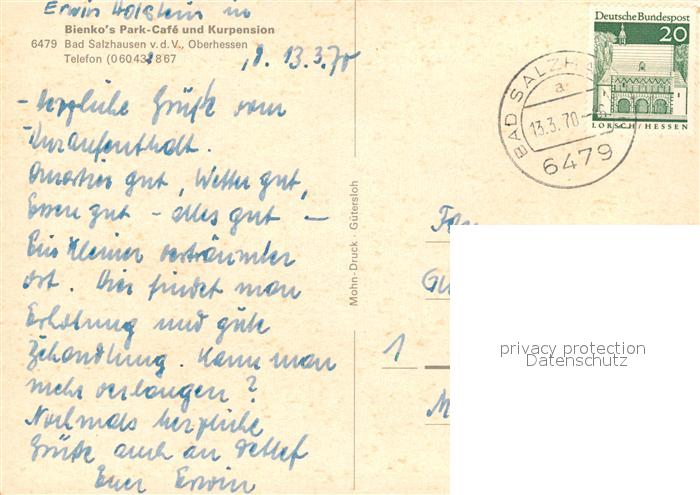 Erwin Holstein in
Bienko's Park-Café und Kurpension
6479 Bad Salzhausen v. d. V., Oberhessen
Telefon (06043) 867
d. 13.3.70
- Herzliche Grüße vom
- Kuraufenthalt.
Quartier gut, Wetter gut,
Essen gut - alles gut -
Ein kleiner verträumter
Ort. Hier findet man
Erholung und gute
Behandlung. Kann man
mehr verlangen?
Nochmals herzliche
Grüße auch an Detlef
Euer Erwin
Mohn-Druck · Gütersloh
Deutsche Bundespost
20
LORSCH/HESSEN
BAD SALZH
a
13.3.70
6479
1
privacy protection
Datenschutz